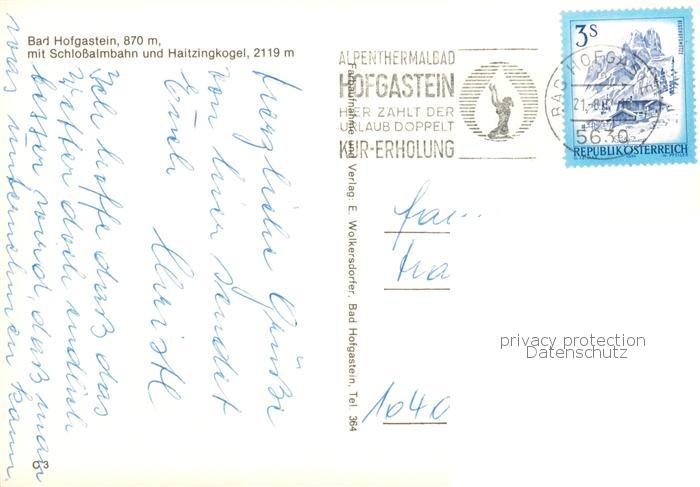 Bad Hofgastein, 870 m,
mit Schloßalmbahn und Haitzingkogel, 2119 m
ALPENTHERMALBAD
HOFGASTEIN
HIER ZÄHLT DER
URLAUB DOPPELT
KUR-ERHOLUNG
3S
BAD HOFGAST
21.-8
5630
REPUBLIK ÖSTERREICH
Herzliche Grüße
von hier sendet
Euch Christl
Ich hoffe daß das
Wetter doch endlich
besser wird, daß man
was unternehmen kann.
Farbaufnahme und Verlag: E. Wolkersdorfer, Bad Hofgastein, Tel. 364
1040
privacy protection
Datenschutz